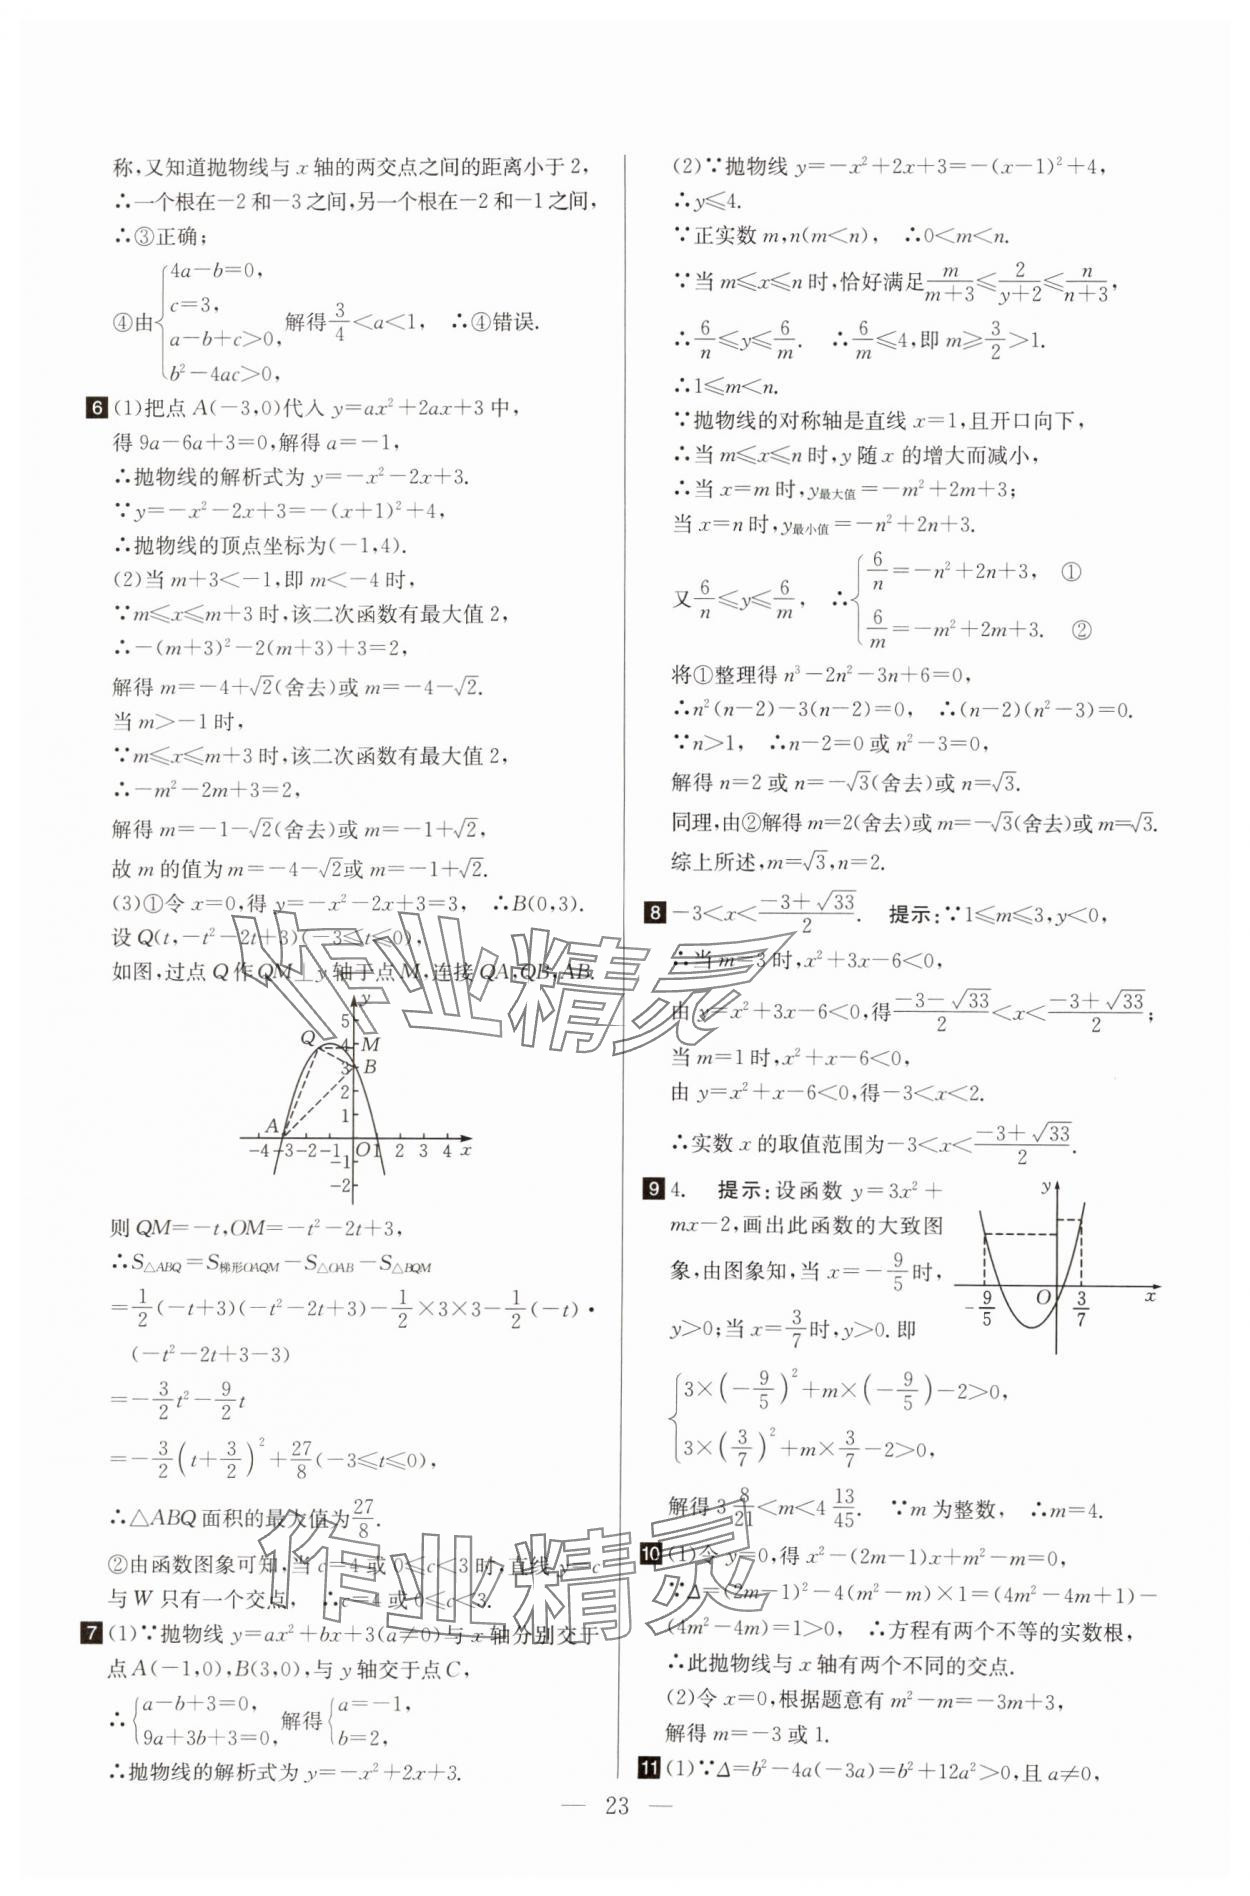 称,又知道抛物线与 x 轴的两交点之间的距离小于 2,
∴一个根在-2 和-3 之间,另一个根在-2 和-1 之间,
∴③正确;
④由{4a-b=0, c=3, a-b+c>0, b²-4ac>0, 解得 3/4<a<1, ∴④错误.
6 (1)把点 A(-3,0)代入 y=ax²+2ax+3 中,
得 9a-6a+3=0,解得 a=-1,
∴抛物线的解析式为 y=-x²-2x+3.
∵y=-x²-2x+3=-(x+1)²+4,
∴抛物线的顶点坐标为(-1,4).
(2)当 m+3<-1,即 m<-4 时,
∵m≤x≤m+3 时,该二次函数有最大值 2,
∴-(m+3)²-2(m+3)+3=2,
解得 m=-4+√2(舍去)或 m=-4-√2.
当 m>-1 时,
∵m≤x≤m+3 时,该二次函数有最大值 2,
∴-m²-2m+3=2,
解得 m=-1-√2(舍去)或 m=-1+√2,
故 m 的值为 m=-4-√2或 m=-1+√2.
(3)①令 x=0,得 y=-x²-2x+3=3, ∴B(0,3).
设 Q(t,-t²-2t+3)(-3≤t≤0),
如图,过点 Q 作 QM⊥y 轴于点 M,连接 QA,QB,AB.
y
5
Q 4 M
3 B
2
1
A
-4 -3 -2 -1 O 1 2 3 4 x
-1
-2
则 QM=-t,OM=-t²-2t+3,
∴S△ABQ=S梯形OAQM-S△OAB-S△BQM
=1/2(-t+3)(-t²-2t+3)-1/2×3×3-1/2(-t)·
(-t²-2t+3-3)
=-3/2t²-9/2t
=-3/2(t+3/2)²+27/8(-3≤t≤0),
∴△ABQ 面积的最大值为27/8.
②由函数图象可知,当 c=4 或 0≤c<3 时,直线 y=c
与 W 只有一个交点, ∴c=4 或 0≤c<3.
7 (1)∵抛物线 y=ax²+bx+3(a≠0)与 x 轴分别交于
点 A(-1,0),B(3,0),与 y 轴交于点 C,
∴{a-b+3=0, 9a+3b+3=0, 解得{a=-1, b=2,
∴抛物线的解析式为 y=-x²+2x+3.
(2)∵抛物线 y=-x²+2x+3=-(x-1)²+4,
∴y≤4.
∵正实数 m,n(m<n), ∴0<m<n.
∵当 m≤x≤n 时,恰好满足 m/(m+3)≤2/(y+2)≤n/(n+3),
∴6/n≤y≤6/m. ∴6/m≤4,即 m≥3/2>1.
∴1≤m<n.
∵抛物线的对称轴是直线 x=1,且开口向下,
∴当 m≤x≤n 时,y 随 x 的增大而减小,
∴当 x=m 时,y最大值=-m²+2m+3;
当 x=n 时,y最小值=-n²+2n+3.
又 6/n≤y≤6/m, ∴{6/n=-n²+2n+3, ① 6/m=-m²+2m+3. ②
将①整理得 n³-2n²-3n+6=0,
∴n²(n-2)-3(n-2)=0, ∴(n-2)(n²-3)=0.
∵n>1, ∴n-2=0 或 n²-3=0,
解得 n=2 或 n=-√3(舍去)或 n=√3.
同理,由②解得 m=2(舍去)或 m=-√3(舍去)或 m=√3.
综上所述,m=√3,n=2.
8 -3<x<(-3+√33)/2. 提示:∵1≤m≤3,y<0,
∴当 m=3 时,x²+3x-6<0,
由 y=x²+3x-6<0,得(-3-√33)/2<x<(-3+√33)/2;
当 m=1 时,x²+x-6<0,
由 y=x²+x-6<0,得-3<x<2.
∴实数 x 的取值范围为-3<x<(-3+√33)/2.
9 4. 提示:设函数 y=3x²+
mx-2,画出此函数的大致图
象,由图象知,当 x=-9/5时,
y>0;当 x=3/7时,y>0. 即
y
-9/5 O 3/7 x
{3×(-9/5)²+m×(-9/5)-2>0,
3×(3/7)²+m×3/7-2>0,
解得 3 8/21<m<4 13/45. ∵m 为整数, ∴m=4.
10 (1)令 y=0,得 x²-(2m-1)x+m²-m=0,
∵Δ=(2m-1)²-4(m²-m)×1=(4m²-4m+1)-
(4m²-4m)=1>0, ∴方程有两个不等的实数根,
∴此抛物线与 x 轴有两个不同的交点.
(2)令 x=0,根据题意有 m²-m=-3m+3,
解得 m=-3 或 1.
11 (1)∵Δ=b²-4a(-3a)=b²+12a²>0,且 a≠0,
— 23 —
作业精灵
作业精灵